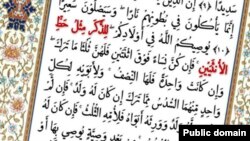 سَدِيدًا (٩) إِنَّ الَّذِينَ
إِنَّمَا يَأْكُلُونَ فِي بُطُونِهِمْ نَارًا وَسَيَصْلَوْنَ سَعِيرًا
(١٠) يُوصِيكُمُ اللَّهُ فِي أَوْلَادِكُمْ لِلذَّكَرِ مِثْلُ حَظِّ
الْأُنْثَيَيْنِ فَإِنْ كُنَّ نِسَاءً فَوْقَ اثْنَتَيْنِ فَلَهُنَّ ثُلُثَا مَا تَرَكَ
وَإِنْ كَانَتْ وَاحِدَةً فَلَهَا النِّصْفُ وَلِأَبَوَيْهِ لِكُلِّ
وَاحِدٍ مِنْهُمَا السُّدُسُ مِمَّا تَرَكَ إِنْ كَانَ لَهُ وَلَدٌ فَإِنْ لَمْ
يَكُنْ لَهُ وَلَدٌ وَوَرِثَهُ أَبَوَاهُ فَلِأُمِّهِ الثُّلُثُ فَإِنْ كَانَ لَهُ
بَعْدِ وَصِيَّةٍ يُوصِي بِهَا أَوْ
Public domain